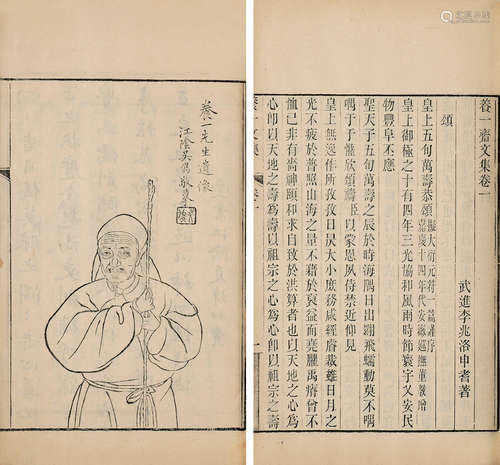 養一齋文集卷一
武進李兆洛申耆著
頌
皇上五旬萬壽恭頌
皇上御極之十有四年三光協和風雨時節寰宇乂安民
物豐阜丕應
聖天子五旬萬壽之辰於時海隅日出翾飛蠕動莫不喁
喁于于懽欣頌禱臣以蒙恩夙侍禁近仰見
皇上無逸作所孜孜日昃大小庶務咸經睿裁雖日月之
光不疲於普照山海之量不藉於裒益而堯臞禹瘠曾不
恤已非有嗇神頤和求自致於洪算者也以天地之心為
心即以天地之壽為壽以祖宗之心為心即以祖宗之壽
養一文集
卷一
一
養一先生遺像
江陰吳